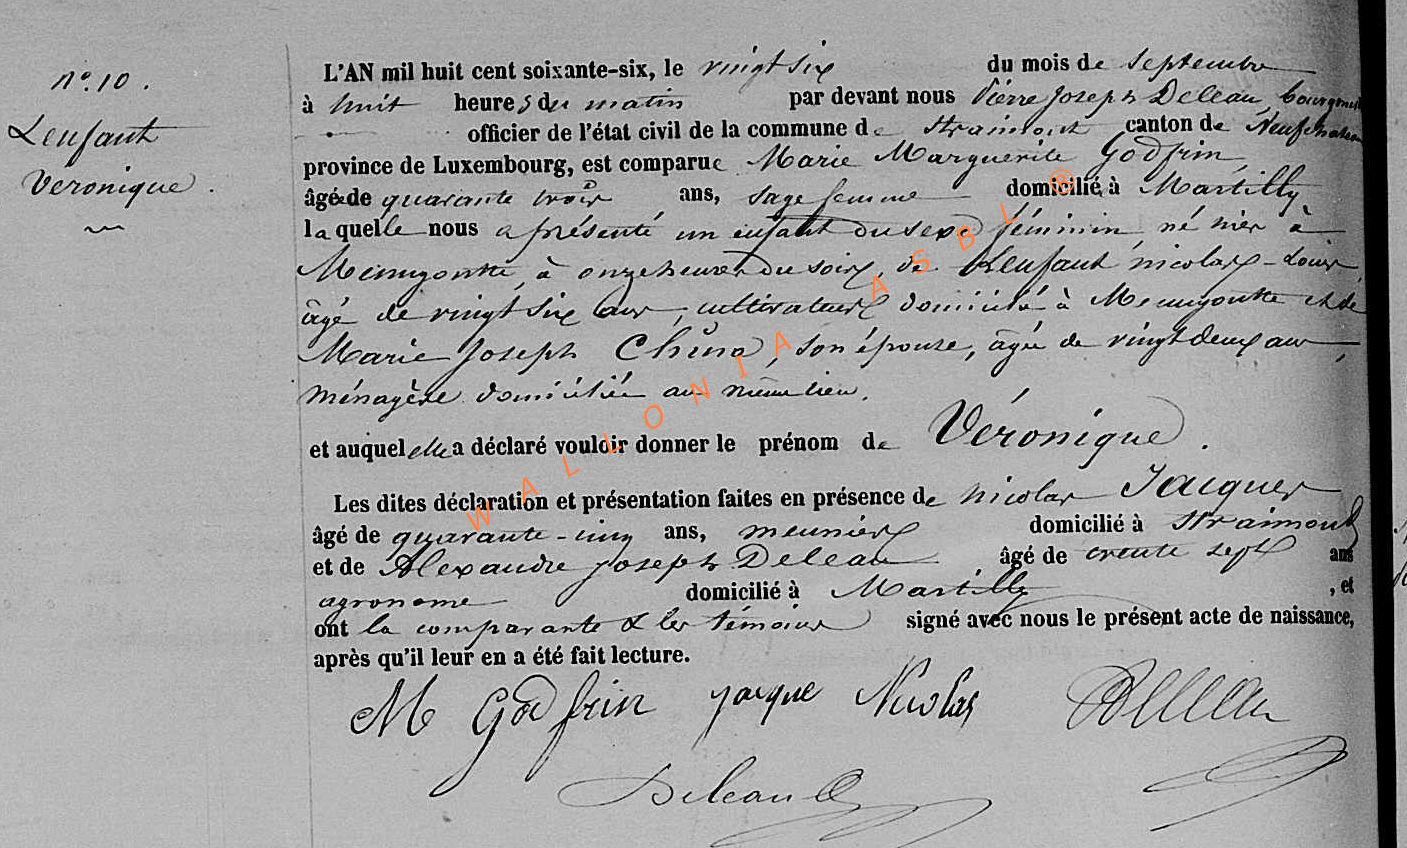 N°. 10.
Lenfant
Veronique.
L'AN mil huit cent soixante-six, le vingt six du mois de septembre
à huit heures du matin par devant nous Pierre Joseph Deleau, bourgmest
officier de l'état civil de la commune de Straimont canton de Neufchateau
province de Luxembourg, est comparue Marie Marguerite Godfrin
âgée de quarante trois ans, sage femme domicilié à Martilly
laquelle nous a présenté un enfant du sexe féminin né hier à
Menugoutte, à onze heures du soir, de Lenfant nicolas-Louis
âgé de vingt six ans, cultivateur domicilié à Menugoutte et de
Marie Joseph son épouse, âgée de vingt deux ans,
ménagère domiciliée au même lieu.
et auquel elle a déclaré vouloir donner le prénom de Véronique.
Les dites déclaration et présentation faites en présence de nicolas Jacques
âgé de quarante-cinq ans, meunier domicilié à Straimont
et de Alexandre Joseph Deleau âgé de trente sept ans
agronome domicilié à Martilly, et
ont la comparante & les témoins signé avec nous le présent acte de naissance,
après qu'il leur en a été fait lecture.
M Godfrin jacque Nicolas ADeleau
Deleau
WALLONIA ASBL ®